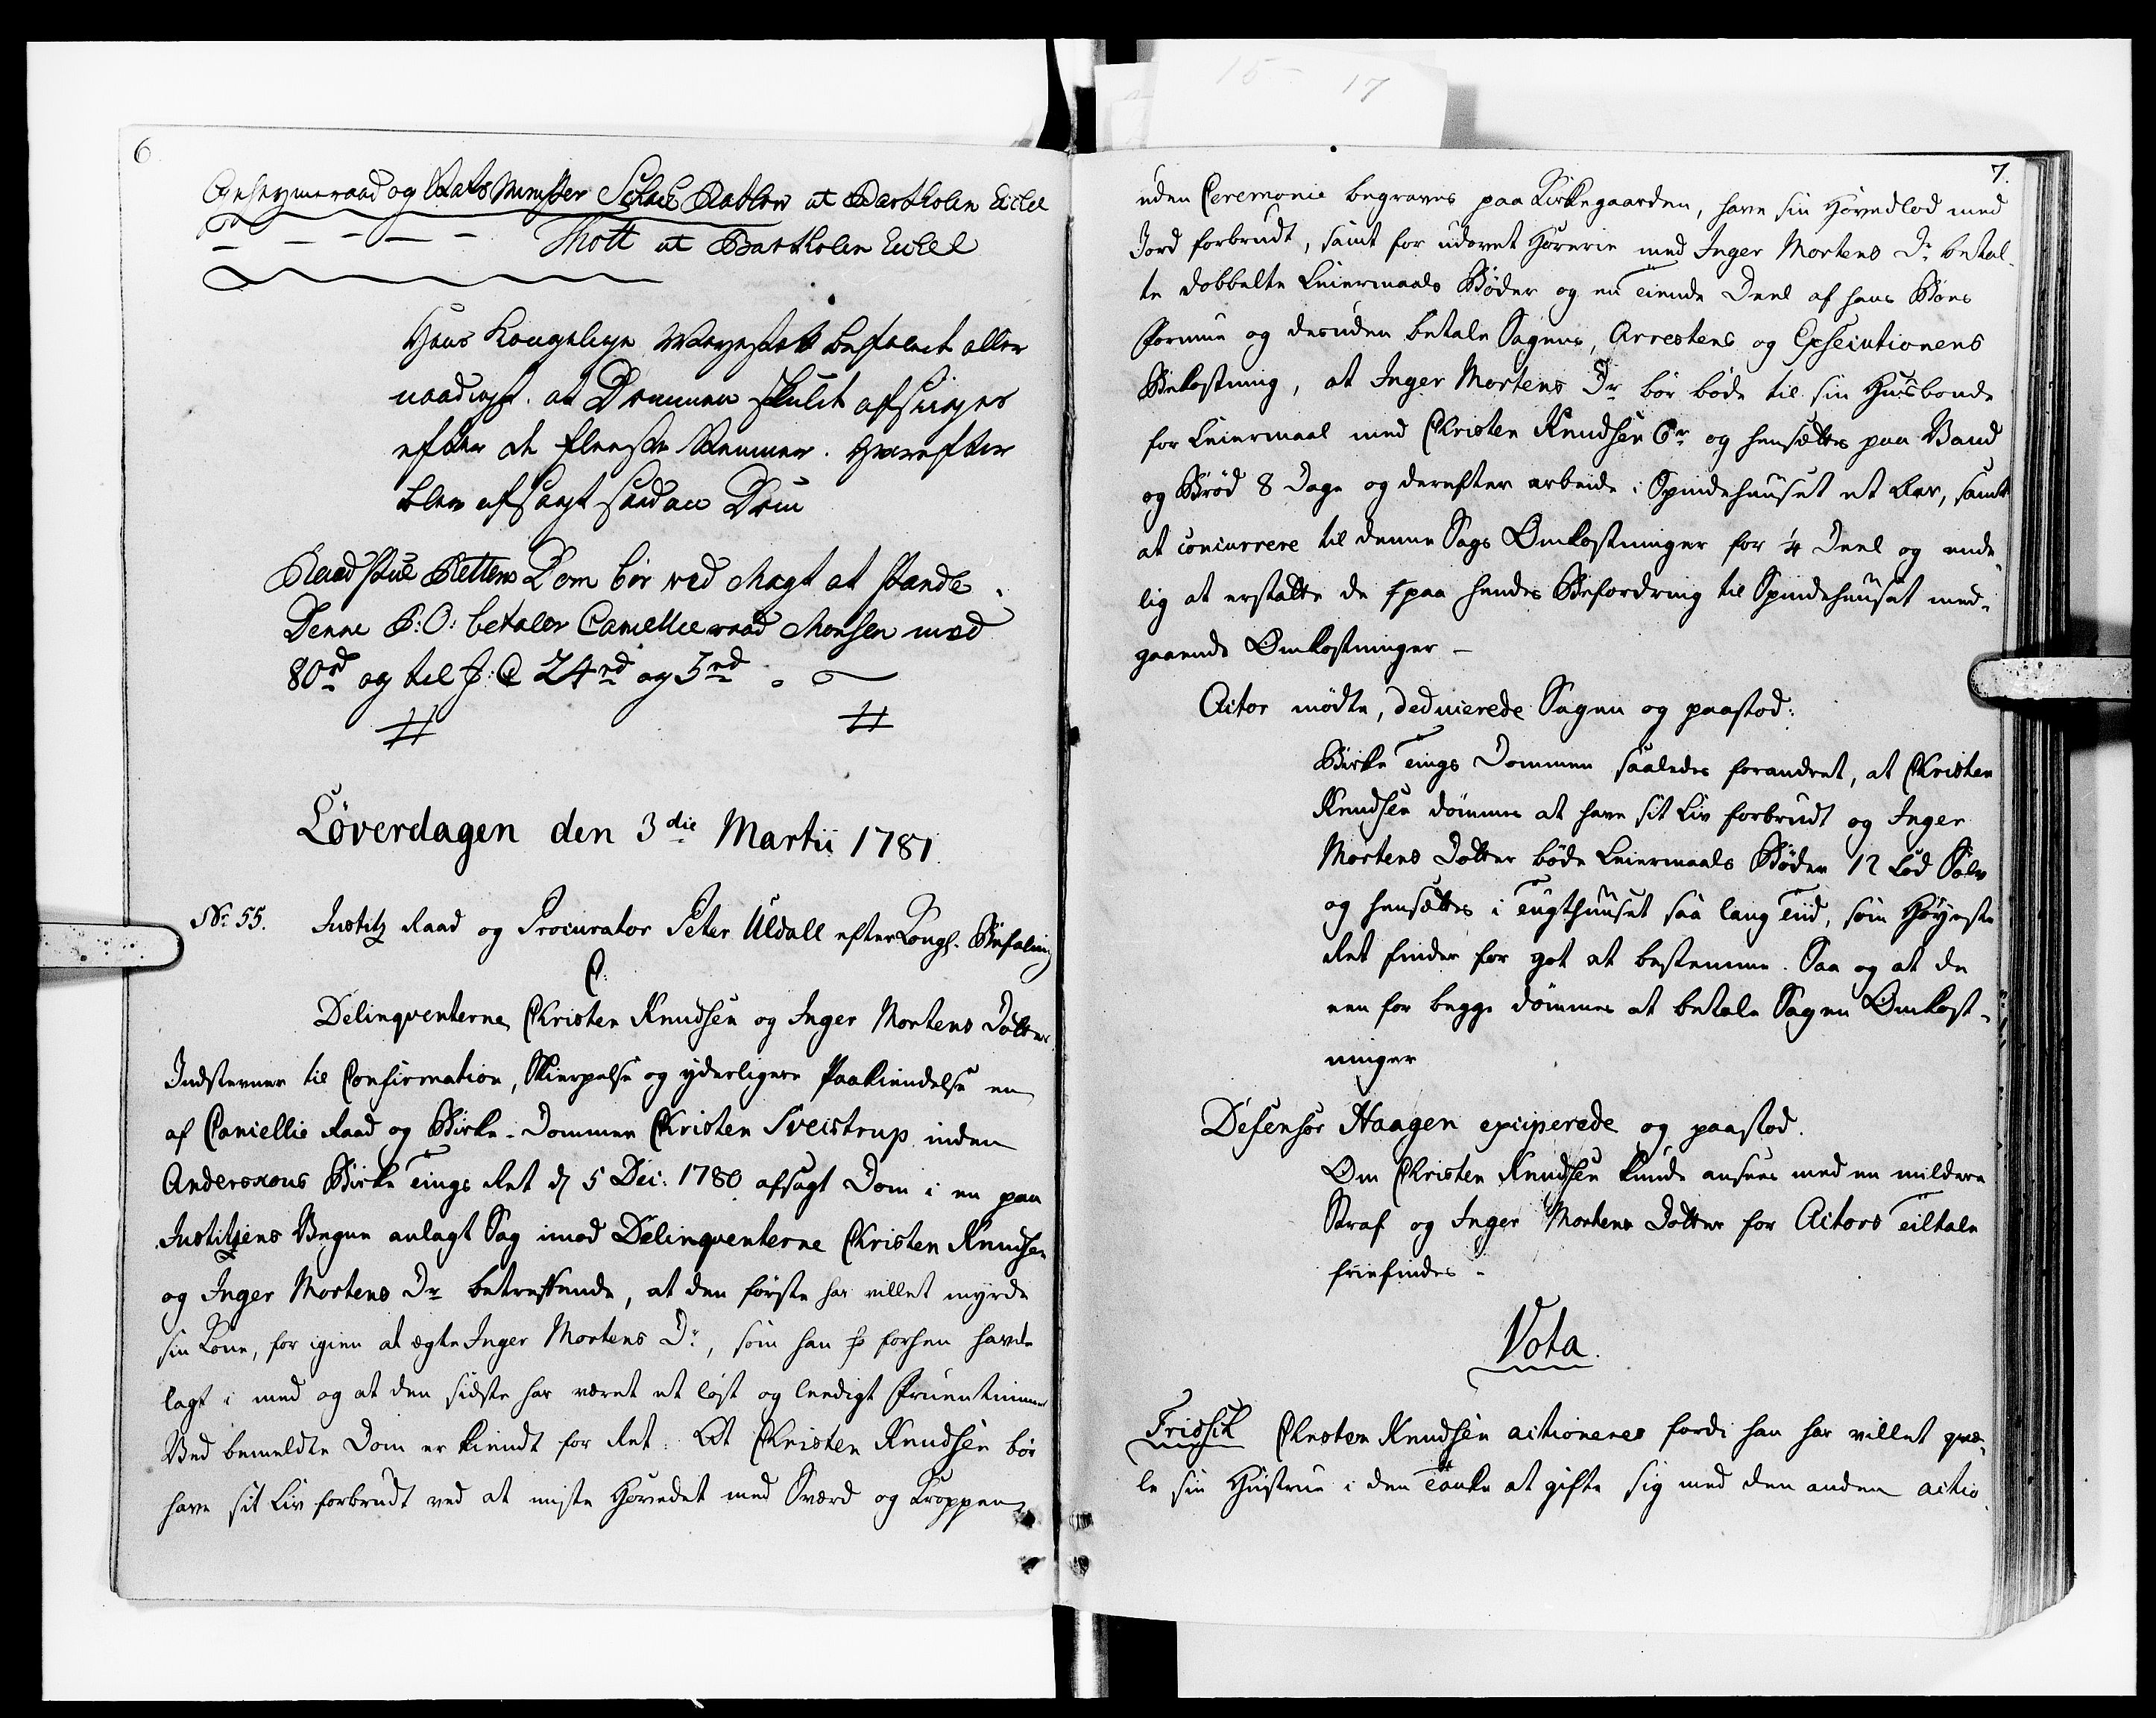 6
Geheymeraad og Stats Minister Schack Rathlou ut Bartholin Eichel
Thott ut Bartholin Eichel
Hans Kongelige Mayestæt befalede aller
naadigst at Dommen skulde afsiges
efter de fleeste Stemmer. Hvorefter
blev afsagt saadan Dom
Raadstue Rettens Dom bør ved Magt at stande.
Denne P: O: betaler Cancellieraad Monsen med
80 rd og til J: C 24 rd og 5 rd
Løverdagen den 3die Martii 1781.
No 55. Justitz Raad og Procurator Peter Uldall efter Kongl. Befaling
C:
Delinqventerne Christen Knudsen og Inger Mortens Datter
Indstevner til Confirmation, Skierpelse og yderligere Paakiendelse en
af Cancellie Raad og Birke-Dommer Christen Sveistrup inden
Anderskous Birke Tings Ret d 5 Dec: 1780 afsagt Dom i en paa
Justitzens Vegne anlagt Sag imod Delinqventerne Christen Knudsen
og Inger Mortens Dr betreffende, at den første har villet myrde
sin Kone, for igien at ægte Inger Mortens Dr, som han forhen havde
lagt i med og at den sidste har været et løst og leedigt Fruentimmer
Ved bemeldte Dom er kiendt for Ret: At Christen Knudsen bør
have sit Liv forbrudt ved at miste Hovedet med Sværd og Kroppen
7.
uden Ceremonie begraves paa Kirkegaarden, have sin Hovedlod med
Jord forbrudt, samt for udøvet Horerie med Inger Mortens Dr betal-
te dobbelte Leiermaals Bøder og en Tiende Deel af hans Boes
Formue og desuden betale Sagens, Arrestens og Exseciutionens
Bekostning, at Inger Mortens Dr bør bøde til sin Husbonde
for Leiermaal med Christen Knudsen 6 rd og hensættes paa Vand
og Brød 8 Dage og derefter arbeide i Spindehuuset et Aar, samt
at concurrere til denne Sags Omkostninger for 1/4 Deel og ende-
lig at erstatte de paa hendes Befordring til Spindehuuset med-
gaaende Omkostninger -
Actor mødte, deducerede Sagen og paastod:
Birke Tings Dommen saaledes forandret, at Christen
Knudsen dømmes at have sit Liv forbrudt og Inger
Mortens Datter bøde Leiermaals Bøder 12 Lod Sølv
og hensættes i Tugthuuset saa lang Tiid, som Høyeste
Ret finder for got at bestemme. Saa og at de
een for begge dømmes at betale Sagens Omkost-
ninger
Defensor Haagen exciperede og paastod.
Om Christen Knudsen kunde ansees med en mildere
Straf og Inger Mortens Datter for Actors Tiltale
friefindes -
Vota.
Fridsch Christen Knudsen actioneres fordi han har villet qvæ-
le sin Hustrue i den Tanke at gifte sig med den anden actio-